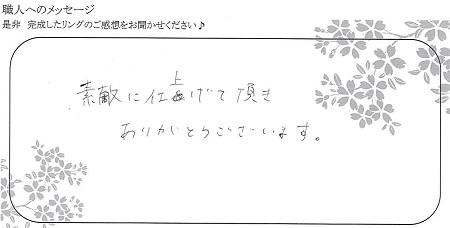 職人へのメッセージ
是非 完成したリングのご感想をお聞かせください♪
素敵に仕上げて頂き
ありがとうございます。